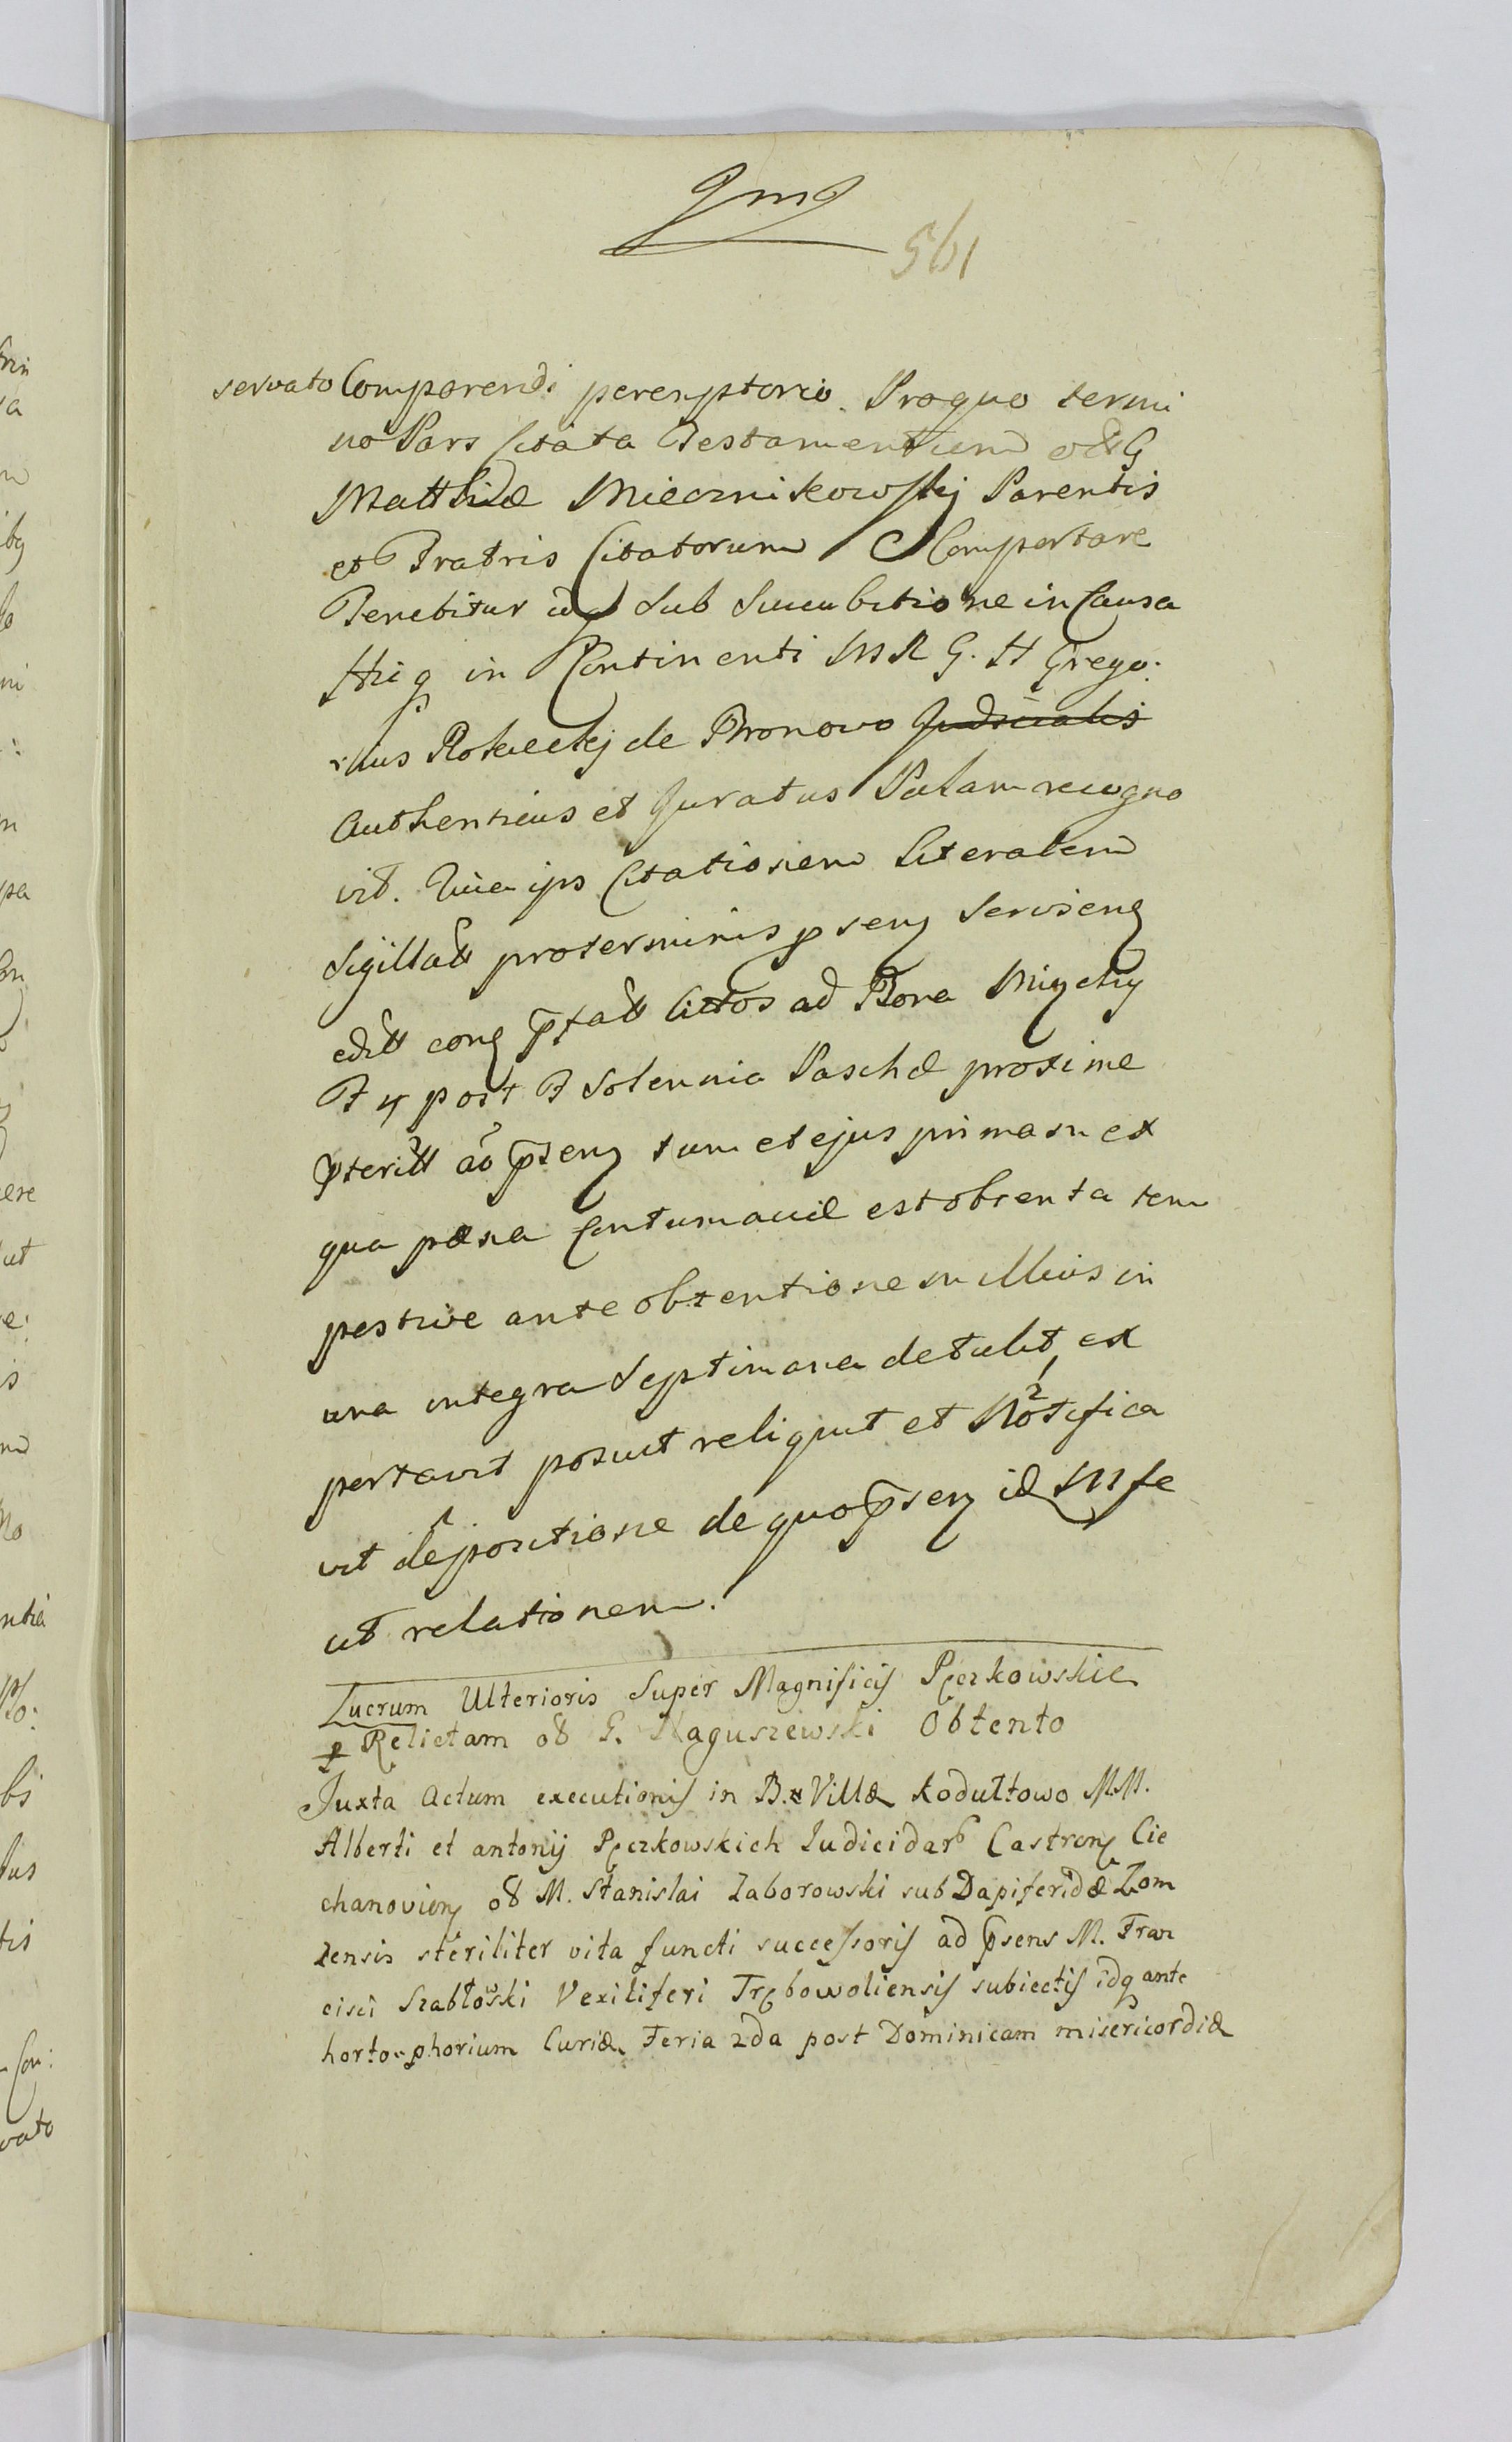 561
servato Comparendi peremptorio. Pro quo termi
no Pars Citata Testamentum olim G
Matthiæ Miecznikowskij Parentis
et Fratris Citatorum Comportare
Tenebitur idq sub succubitione in Causa
Hicq in Continenti M R G. H Grego:
rius Rokickij de Bronowo Judicialis
Authenticus et Juratus Palam recogno
vit. Quia ips Citationem Literalem
Sigillatt pro terminis pseny
editt ad Bona
F 4 post F Solennia Paschæ proxime
pteritt pseny tum et ejus primam ex
qua pæna Contumaciæ est obtenta tem
pestive ante obtentionem illius in
una integra Septimana detulit, ex
portavit posuit reliquit et Notifica
vit de positione de quo pseny id M fe
cit relationem.
Lucrum Ulterioris Super Magnificis Pęczkowskie
Relictam G. Naguszewski Obtento
Juxta Actum executionis in B. Villæ Koduttowo M.M.
Alberti et antonij Pęczkowskich Judicidar Castren Cie
chanovien M. Stanislai Zaborowski sub Dapiferidæ Łom
zensis steriliter vita functi successoris ad psens M. Fran
cisci Szabłoski Vexiliferi Trębowoliensis subiectis idq ante
horto-phorium Curiæ Feria 2da post Dominicam misericordiæ